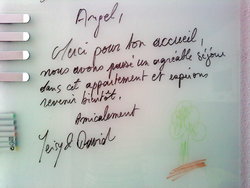 Angel,
Merci pour ton accueil,
nous avons passé un agréable séjour
dans cet appartement et espérons
revenir bientôt.
Amicalement
& David